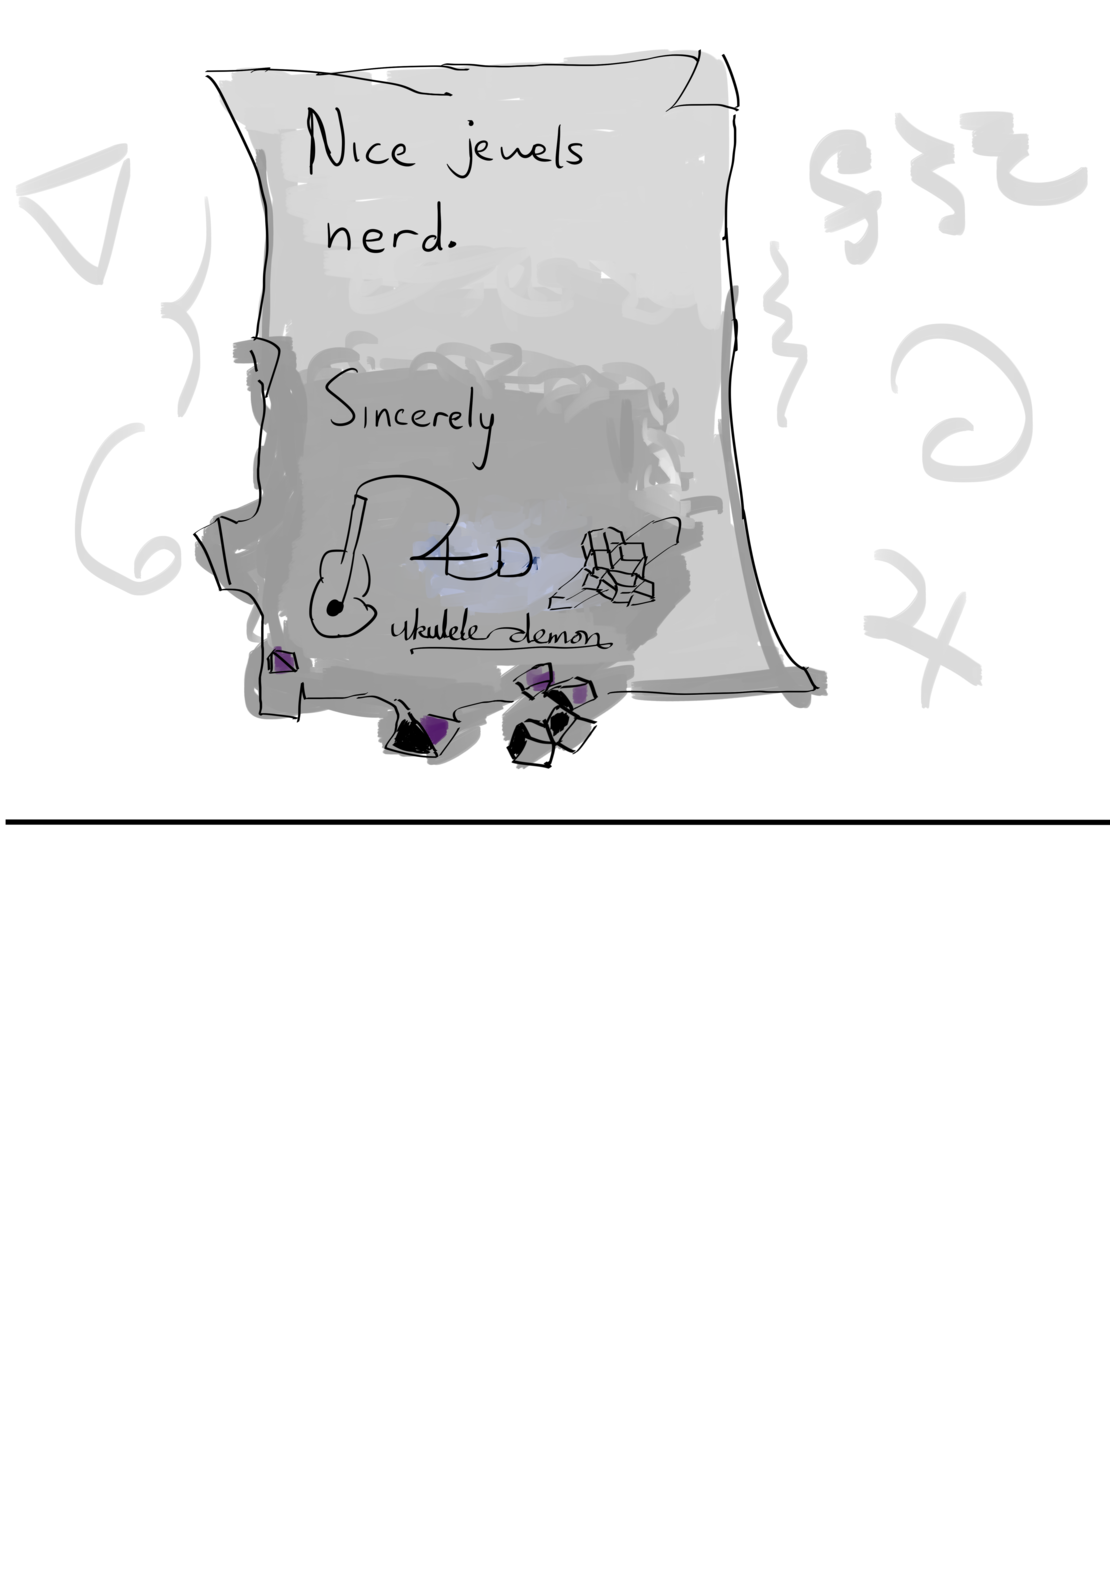 Nice jewels
nerd.
Sincerely
ukulele demon